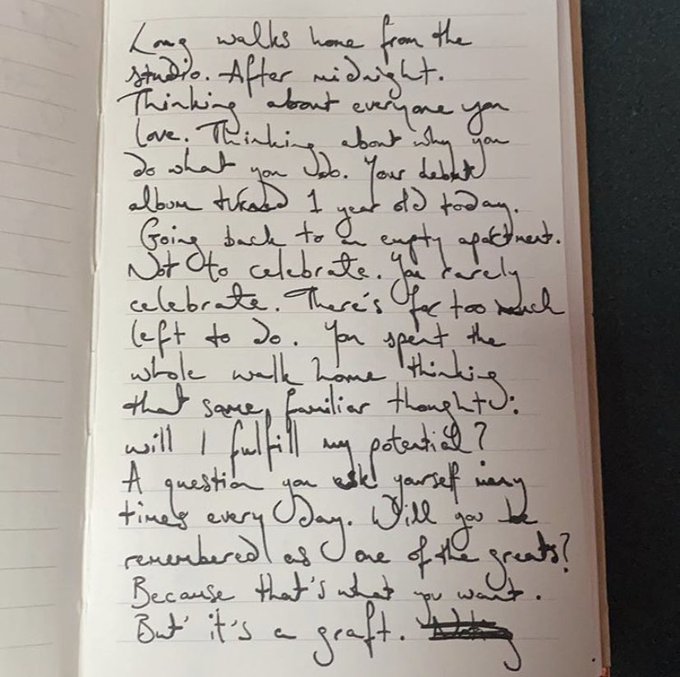 Long walks home from the
studio. After midnight.
Thinking about everyone you
love. Thinking about why you
do what you do. Your debut
album turned 1 year old today.
Going back to an empty apartment.
Not to celebrate. You rarely
celebrate. There's far too much
left to do. You spent the
whole walk home thinking
that same, familiar thought:
will I fulfill my potential?
A question you ask yourself many
times every day. Will you be
remembered as one of the greats?
Because that's what you want.
But it's a graft.